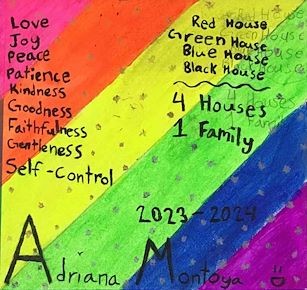 Love
Joy
Peace
Patience
Kindness
Goodness
Faithfulness
Gentleness
Self-Control
Red House
Green House
Blue House
Black House
4 Houses
1 Family
2023-2024
Adriana Montoya